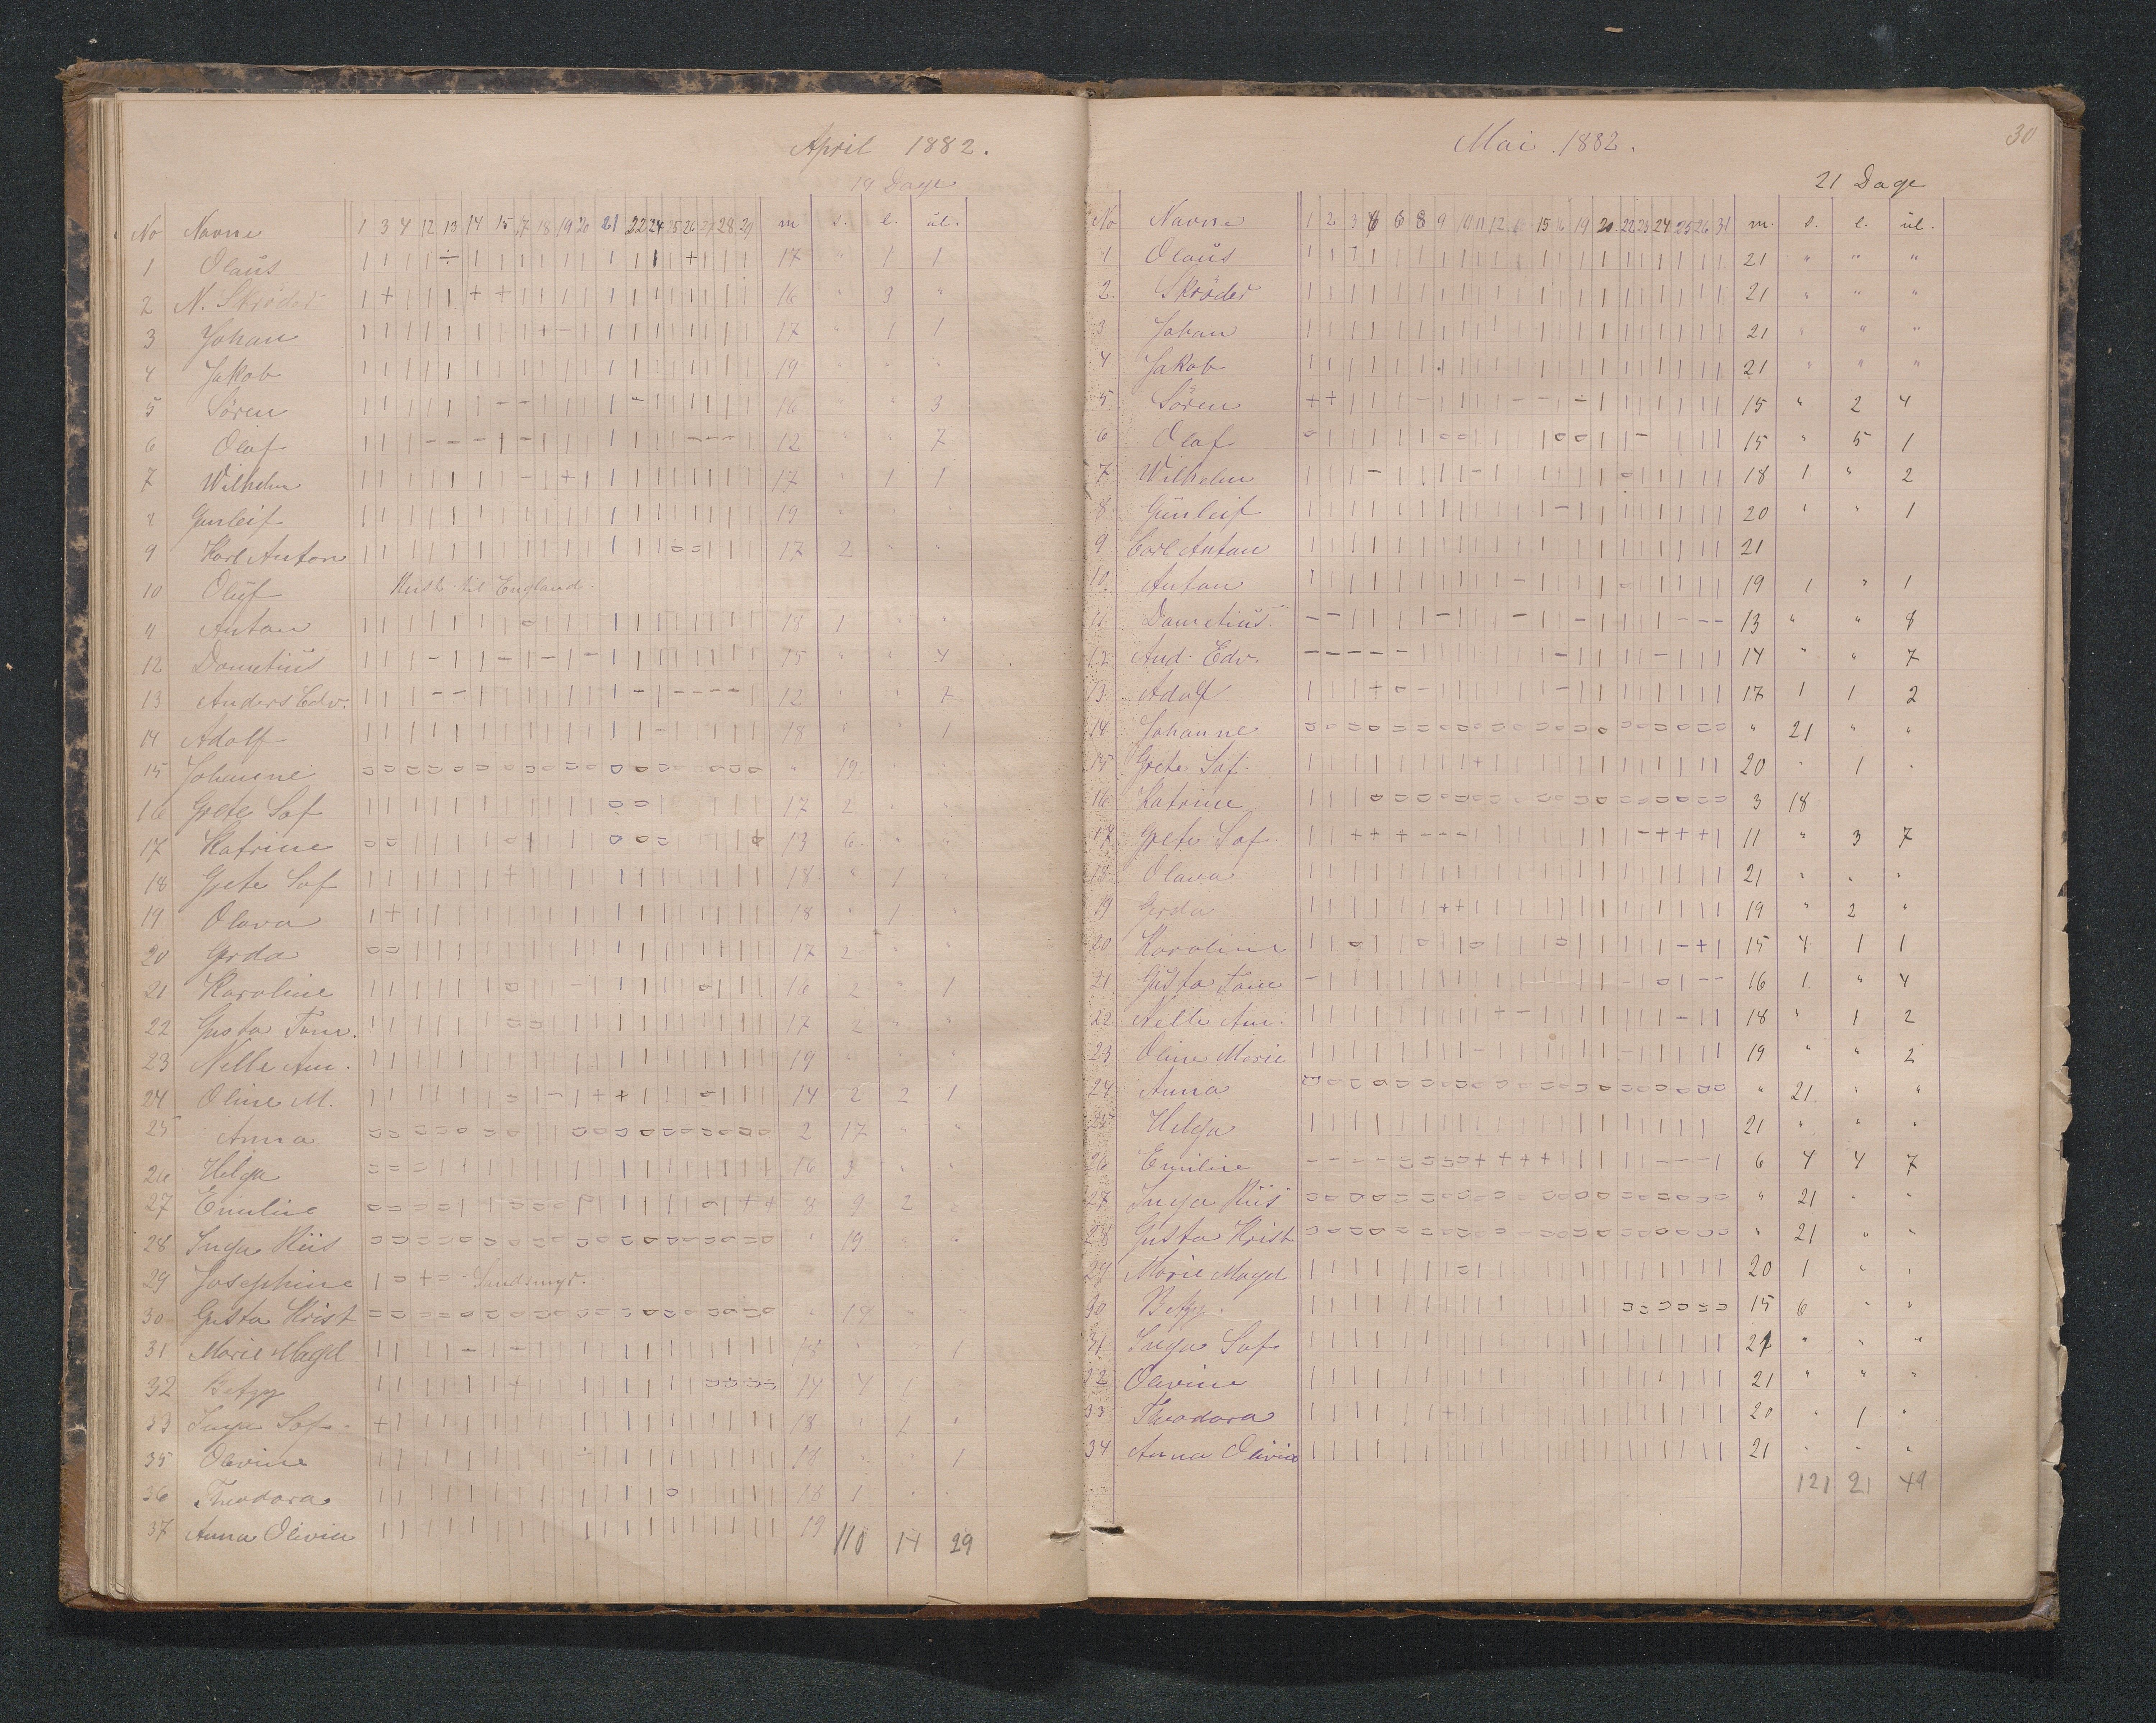 April 1882.
19 Dage
No Navne 1 3 4 12 13 14 15 17 18 19 20 21 22 24 25 26 27 28 29 m s. l. ul.
1 Olaus | | | | ÷ | | | | | | | | | | + | | | 17 " 1 1
2 N. Skröder | + | | | + + | | | | | | | | | | | | 16 " 3 "
3 Johan | | | | | | | | + - | | | | | | | | | 17 " 1 1
4 Jakob 19 " " "
5 Sören 16 " " 3
6 Olaf 12 " " 7
7 Wilhelm 17 " 1 1
8 Gunleif 19 " " "
9 Karl Anton 17 2 " "
10 Oluf Reist til England.
11 Anton 18 1 " "
12 Dometius 15 " " 4
13 Anders Edv. 12 " " 7
14 Adolf 18 " 1
15 Johanne " 19 " "
16 Grete Sof 17 2 " "
17 Katrine 13 6 " "
18 Grete Sof 18 " 1 "
19 Olava 18 " 1 "
20 Gerda 17 2 " "
21 Karoline 16 2 " 1
22 Gusta Tom. 17 2 " "
23 Nelle Am. 19 " " "
24 Oline M. 14 2 2 1
25 Anna 2 17 " "
26 Helga 16 3 " "
27 Emiline 8 9 2 "
28 Inga Riis " 19 " "
29 Josephine | = + = Sandsmyr.
30 Gusta Krist " 19 " "
31 Marie Magd 18 " " 1
32 Betzy 14 4 1
33 Inga Sof. 18 " 1 "
35 Olevine 18 " " 1
36 Theodora 18 1 " "
37 Anna Olivia 19 110 14 29
30
Mai. 1882.
21 Dage
No Navne 1 2 3 4 6 8 9 10 11 12 13 15 16 19 20 22 23 24 25 26 31 m. s. l. ul.
1 Olaus 21 " " "
2. Skröder 21 " " "
3 Johan 21 " " "
4 Jakob 21 " " "
5 Sören 15 " 2 4
6 Olaf 15 " 5 1
7 Wilhelm 18 1 " 2
8 Gunleif 20 " " 1
9 Carl Anton 21
10. Anton 19 1 " 1
11 Dometius 13 " " 8
12 And. Edv. 14 " " 7
13 Adolf 17 1 1 2
14 Johanne " 21 " "
15 Grete Sof. 20 " 1 "
16 Katrine 3 18
17 Grete Sof. 11 " 3 7
18 Olava 21 " " "
19 Gerda 19 " 2 "
20 Karoline 15 4 1 1
21 Gusta Tom 16 1 " 4
22 Nelle Am. 18 " 1 2
23 Oline Marie 19 " " 2
24 Anna " 21 " "
25 Helga 21 " " "
26 Emiline 6 4 4 7
27 Inga Riis " 21 " "
28 Gusta Krist " 21 " "
29 Marie Magd 20 1 " "
30 Betzy. 15 6 " "
31 Inga Sof 21 " " "
32 Olevine 21 " " "
33 Theodora 20 " 1 "
34 Anna Olivia 21 " " "
121 21 49